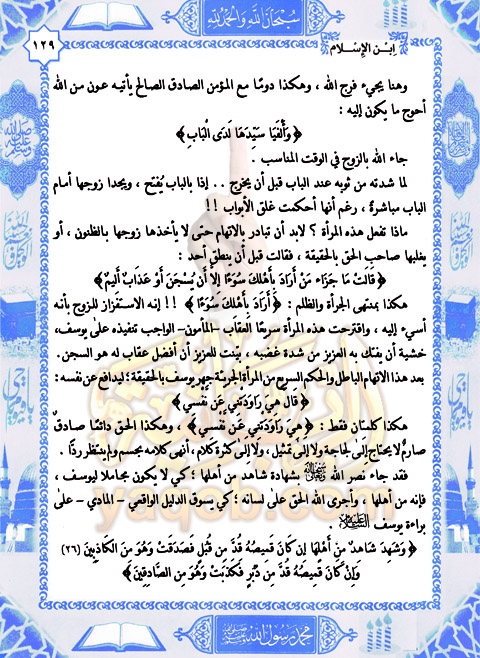 سُبْحَانَ اللَّهِ وَالْحَمْدُ لِلَّهِ
اِبْن الإِسْلام
١٢٩
وهنا يجيء فرج الله ، وهكذا دومًا مع المؤمن الصادق الصالح يأتيه عون من الله
أحوج ما يكون إليه :
﴿ وَأَلْفَيَا سَيِّدَهَا لَدَى الْبَابِ ﴾
جاء الله بالزوج في الوقت المناسب .
لما شدته من ثوبه عند الباب قبل أن يخرج .. إذا بالباب يُفتح ، ويجدا زوجها أمام
الباب مباشرةً ، رغم أنها أحكمت غلق الأبواب !!
ماذا تفعل هذه المرأة ؟ لابد أن تبادر بالاتهام حتى لا يأخذها زوجها بالظنون ، أو
يغلبها صاحب الحق بالحقيقة ، فقالت قبل أن ينطق أحد :
﴿ قَالَتْ مَا جَزَاءُ مَنْ أَرَادَ بِأَهْلِكَ سُوءًا إِلَّا أَن يُسْجَنَ أَوْ عَذَابٌ أَلِيمٌ ﴾
هكذا بمنتهى الجرأة والظلم : ﴿ أَرَادَ بِأَهْلِكَ سُوءًا ﴾ !! إنه الاستفزاز للزوج بأنه
أسيء إليه ، واقترحت هذه المرأة سريعًا العقاب -المأمون- الواجب تنفيذه على يوسف،
خشية أن يفتك به العزيز من شدة غضبه ، بيّنت للعزيز أن أفضل عقاب له هو السجن.
بعد هذا الاتهام الباطل والحكم السريع من المرأة الجريئة جهر يوسف بالحقيقة؛ ليدافع عن نفسه :
﴿ قَالَ هِيَ رَاوَدَتْنِي عَن نَّفْسِي ﴾
هكذا كلمتان فقط : ﴿ هِيَ رَاوَدَتْنِي عَن نَّفْسِي ﴾ ، وهكذا الحق دائمًا صادقٌ
صارمٌ لا يحتاج إلى لجاجة ولا إلى تمثيل ، ولا إلى كثرة كلام ، أنهى كلامه بحسم ولم ينتظر ردًا .
فقد جاء نصر الله سبحانه وتعالى بشهادة شاهد من أهلها ؛ كي لا يكون مجاملا ليوسف ،
فإنه من أهلها ، وأجرى الله الحق على لسانه ؛ كي يسوق الدليل الواقعي - المادي - على
براءة يوسف عليه السلام .
﴿ وَشَهِدَ شَاهِدٌ مِّنْ أَهْلِهَا إِن كَانَ قَمِيصُهُ قُدَّ مِن قُبُلٍ فَصَدَقَتْ وَهُوَ مِنَ الْكَاذِبِينَ (٢٦)
وَإِن كَانَ قَمِيصُهُ قُدَّ مِن دُبُرٍ فَكَذَبَتْ وَهُوَ مِنَ الصَّادِقِينَ ﴾
محمد رسول الله